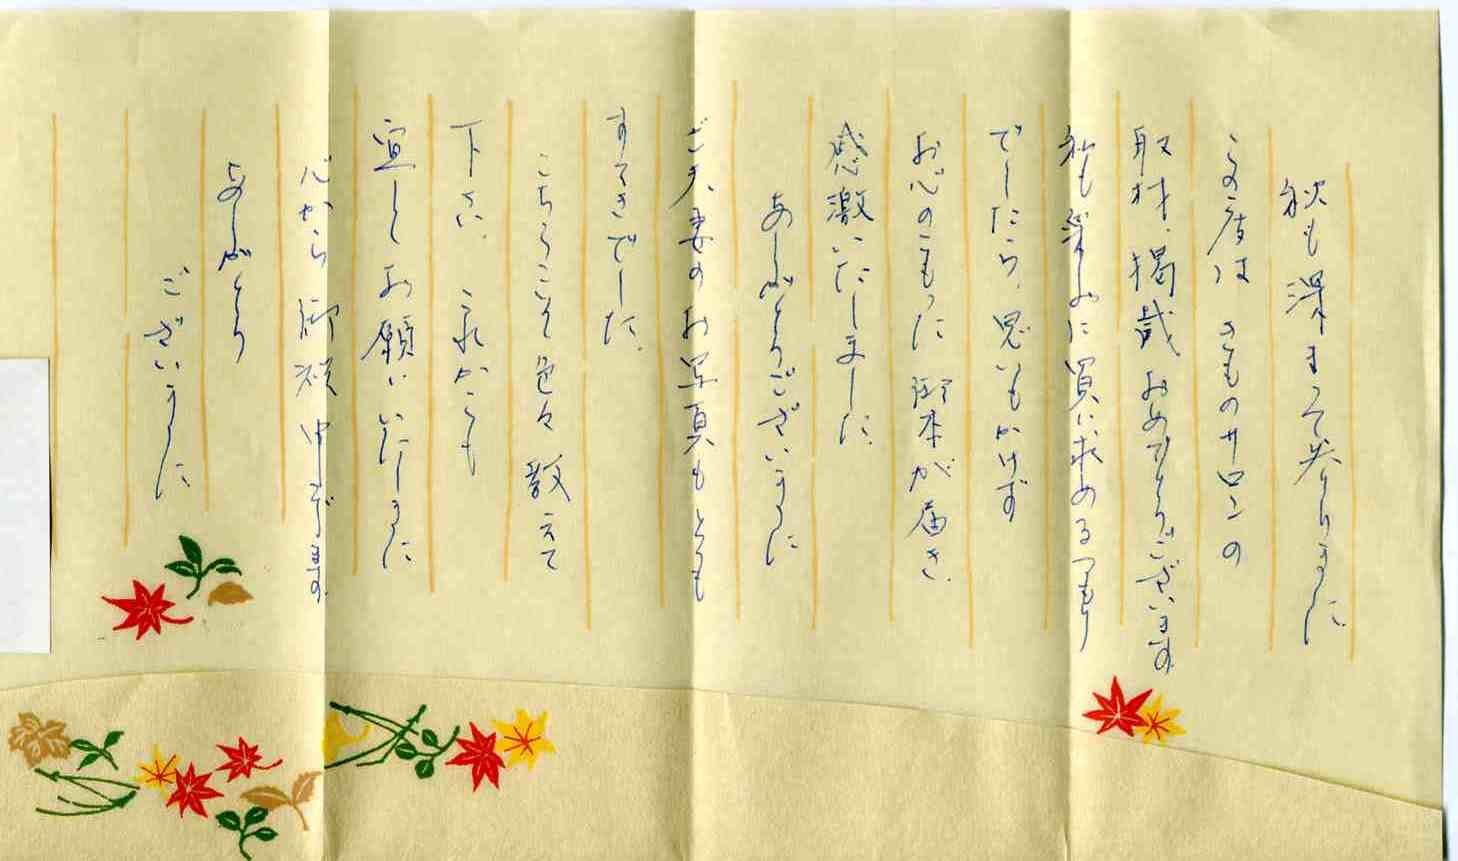 秋も深まって参りました
この度は きものサロンの
取材、掲載 おめでとうございます
私も楽しみに買い求めるつもり
でしたら、思いもかけず
お心のこもった 御本が届き、
感激いたしました。
ありがとうございました
ご夫妻のお写真もとても
すてきでした。
こちらこそ色々 教えて
下さい、これからも
宜しくお願いいたします
心から 御礼 申し上げます
ありがとう
ございました